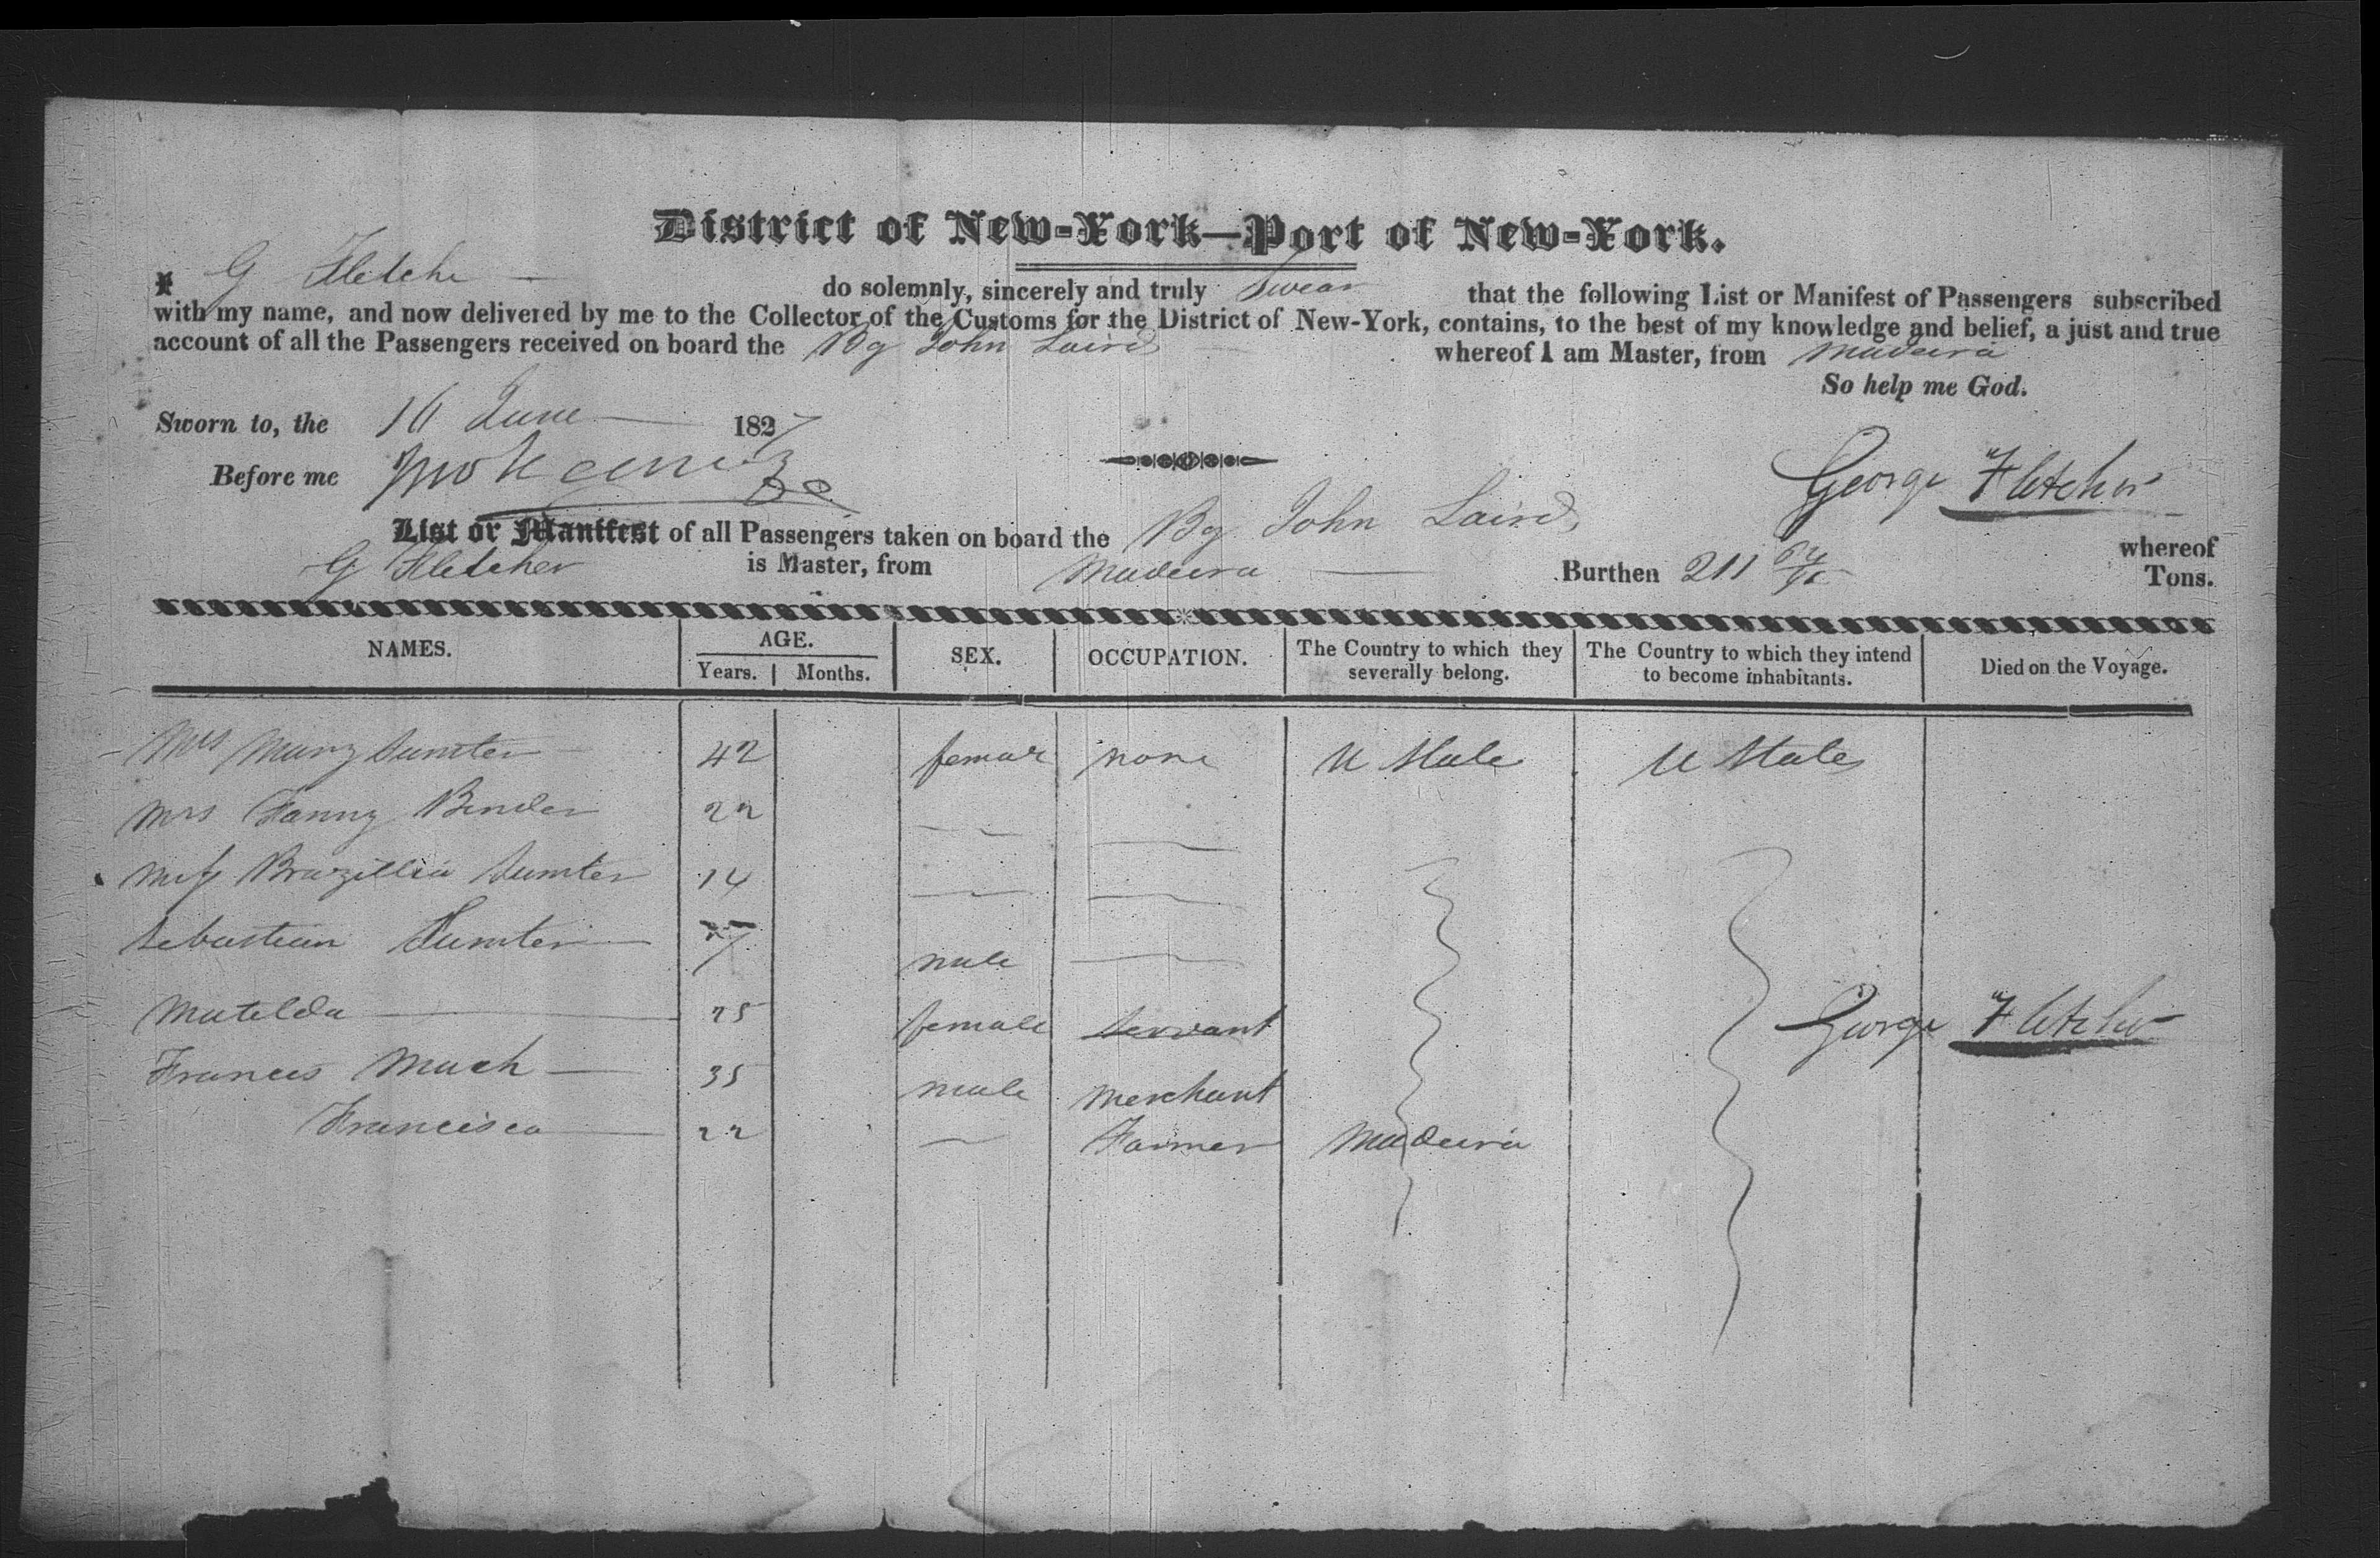 District of New-York—Port of New-York.
I G Fletche do solemnly, sincerely and truly Swear that the following List or Manifest of Passengers subscribed
with my name, and now delivered by me to the Collector of the Customs for the District of New-York, contains, to the best of my knowledge and belief, a just and true
account of all the Passengers received on board the Bg John Laird whereof I am Master, from Madeira
So help me God.
Sworn to, the 16 June 1827
Before me
George Fletcher
List or Manifest of all Passengers taken on board the Bg John Laird, whereof
G Fletcher is Master, from Madeira Burthen 211 Tons.
NAMES. AGE. SEX. OCCUPATION. The Country to which they severally belong. The Country to which they intend to become inhabitants. Died on the Voyage.
Years. Months.
Mrs Mary Sumter 42 female none U State U States
Mrs Fanny Binder 22
Miss Brazillia Sumter 14
Sebastian Sumter 7 male
Matilda 25 female Servant
George Fletcher
Frances Mach 35 male Merchant
Francisco 22 Farmer Madeira